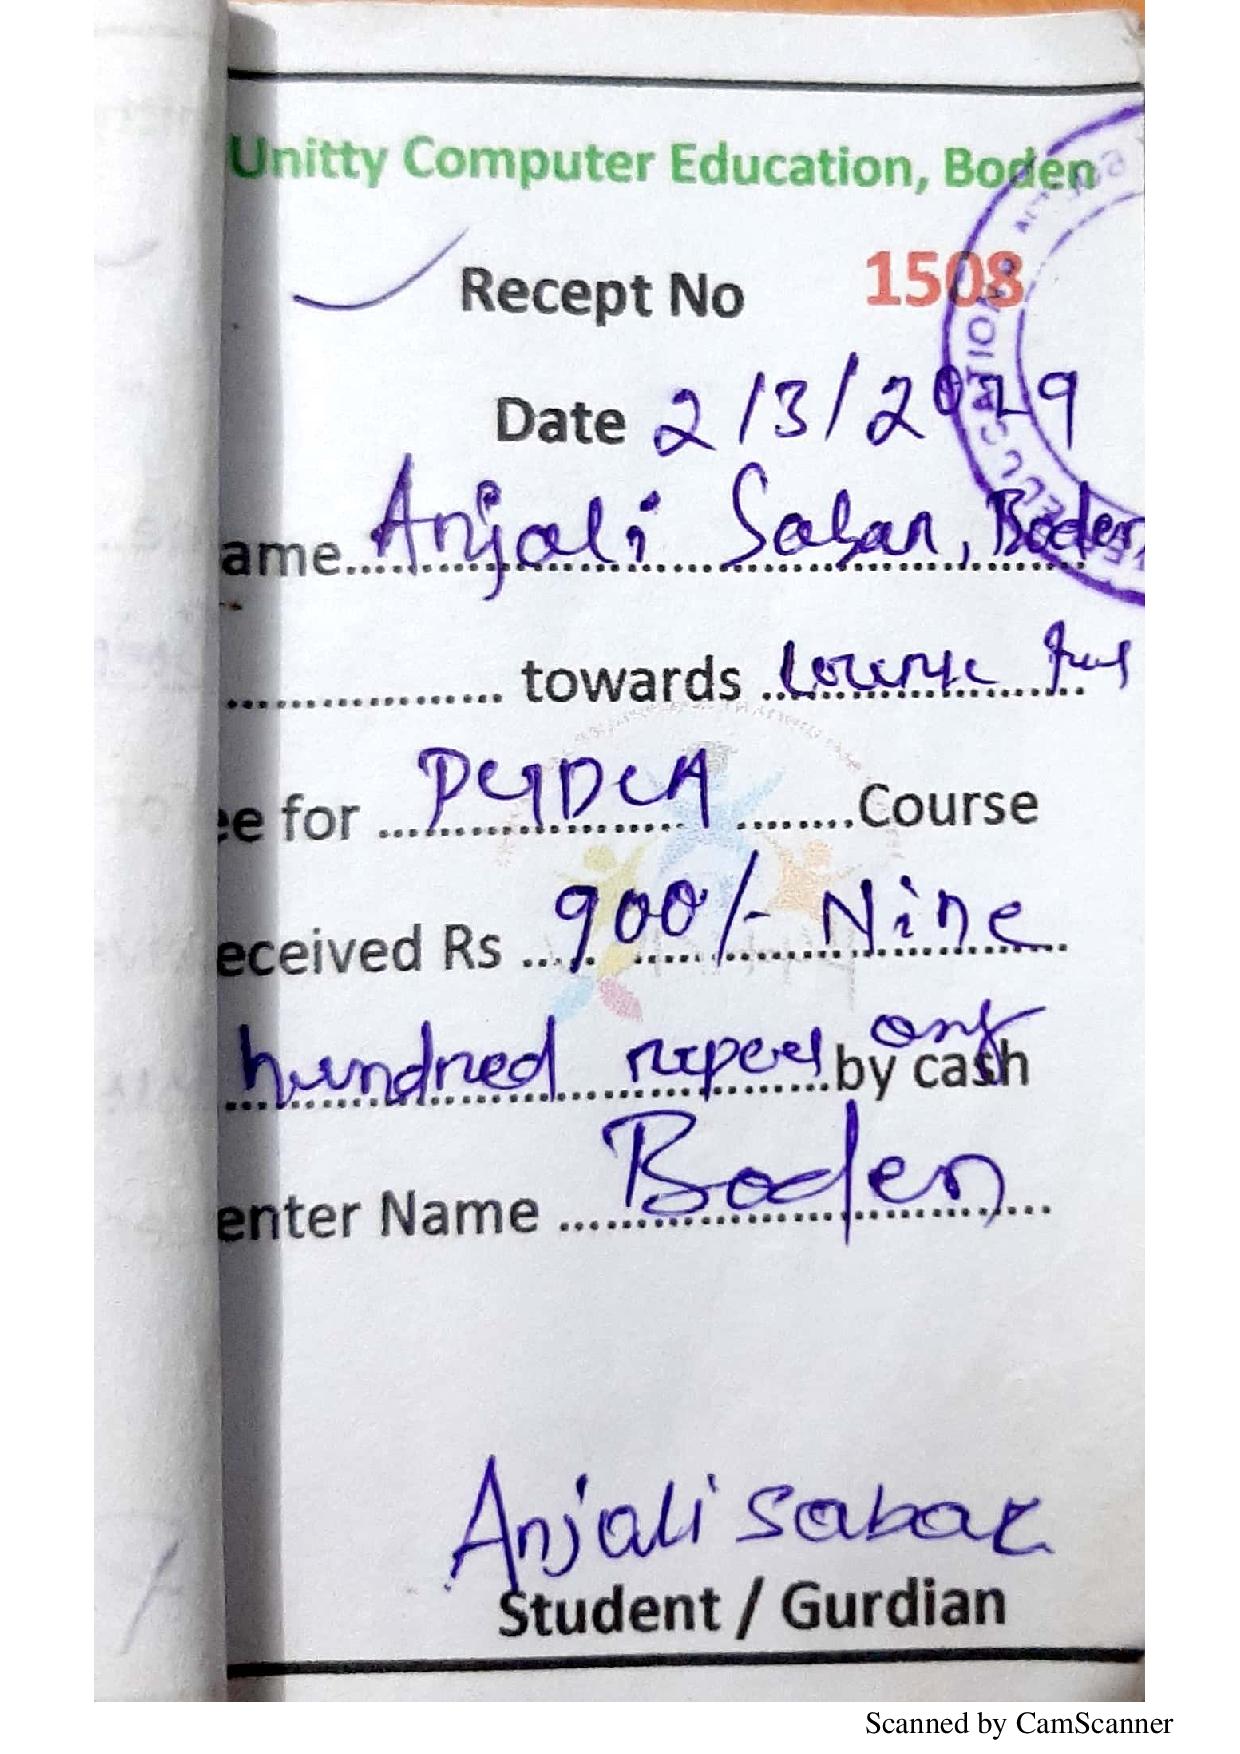 Unitty Computer Education, Boden
Recept No 1508
Date 2/3/2019
ame Anjali Sabar, Boden,
towards course fees
ee for PGDCA Course
eceived Rs 900/- Nine
hundred rupees only by cash
enter Name Boden
Anjali sabar
Student / Gurdian
Scanned by CamScanner